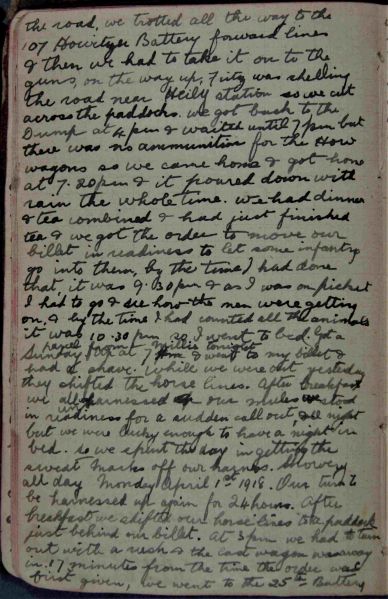 the road, we trotted all the way to the
107 Howitzer Battery forward lines
& then we had to take it on to the
guns, on the way up, Fritz was shelling
the road near Heily station so we cut
across the paddocks. we got back to the
Dump at 4 pm & waited until 7 pm but
there was no ammunition for the How
wagons so we came home & got home
at 7.20 pm & it poured down with
rain the whole time. we had dinner
& tea combined & had just finished
tea & we got the order to move our
billet in readiness to let some infantry
go into them, by the time I had done
that it was 9.30 pm & as I was on picket
I had to go & see how the men were getting
on, & by the time I had counted all the animals
it was 10.30 pm so I went to bed. Got a
parcel from Millis tonight
Sunday at 7 & went to my billet &
had a shave. While we were out yesterday
they shifted the horse lines. After breakfast
we all harnessed our mules & stood
in readiness for a sudden call out, all night
but we were lucky enough to have a night in
bed. so we spent the day in getting the
sweat marks off our harness. Showery
all day Monday April 1st 1918. Our turn to
be harnessed up again for 24 hours. After
breakfast we shifted our horse lines to a paddock
just behind our billet. At 3 pm we had to turn
out with a rush & the last wagon was away
in 17 minutes from the time the order was
first given, we went to the 25th Battery